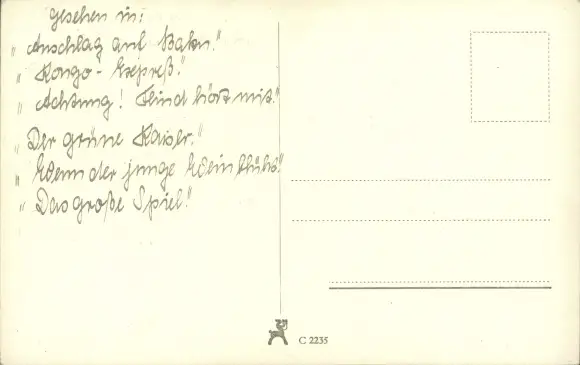 gesehen in:
"Anschlag auf Baku."
"Kongo-Expreß."
"Achtung! Feind hört mit."
"Der grüne Kaiser."
"Wenn der junge Wein blüht."
"Das große Spiel."
C 2235